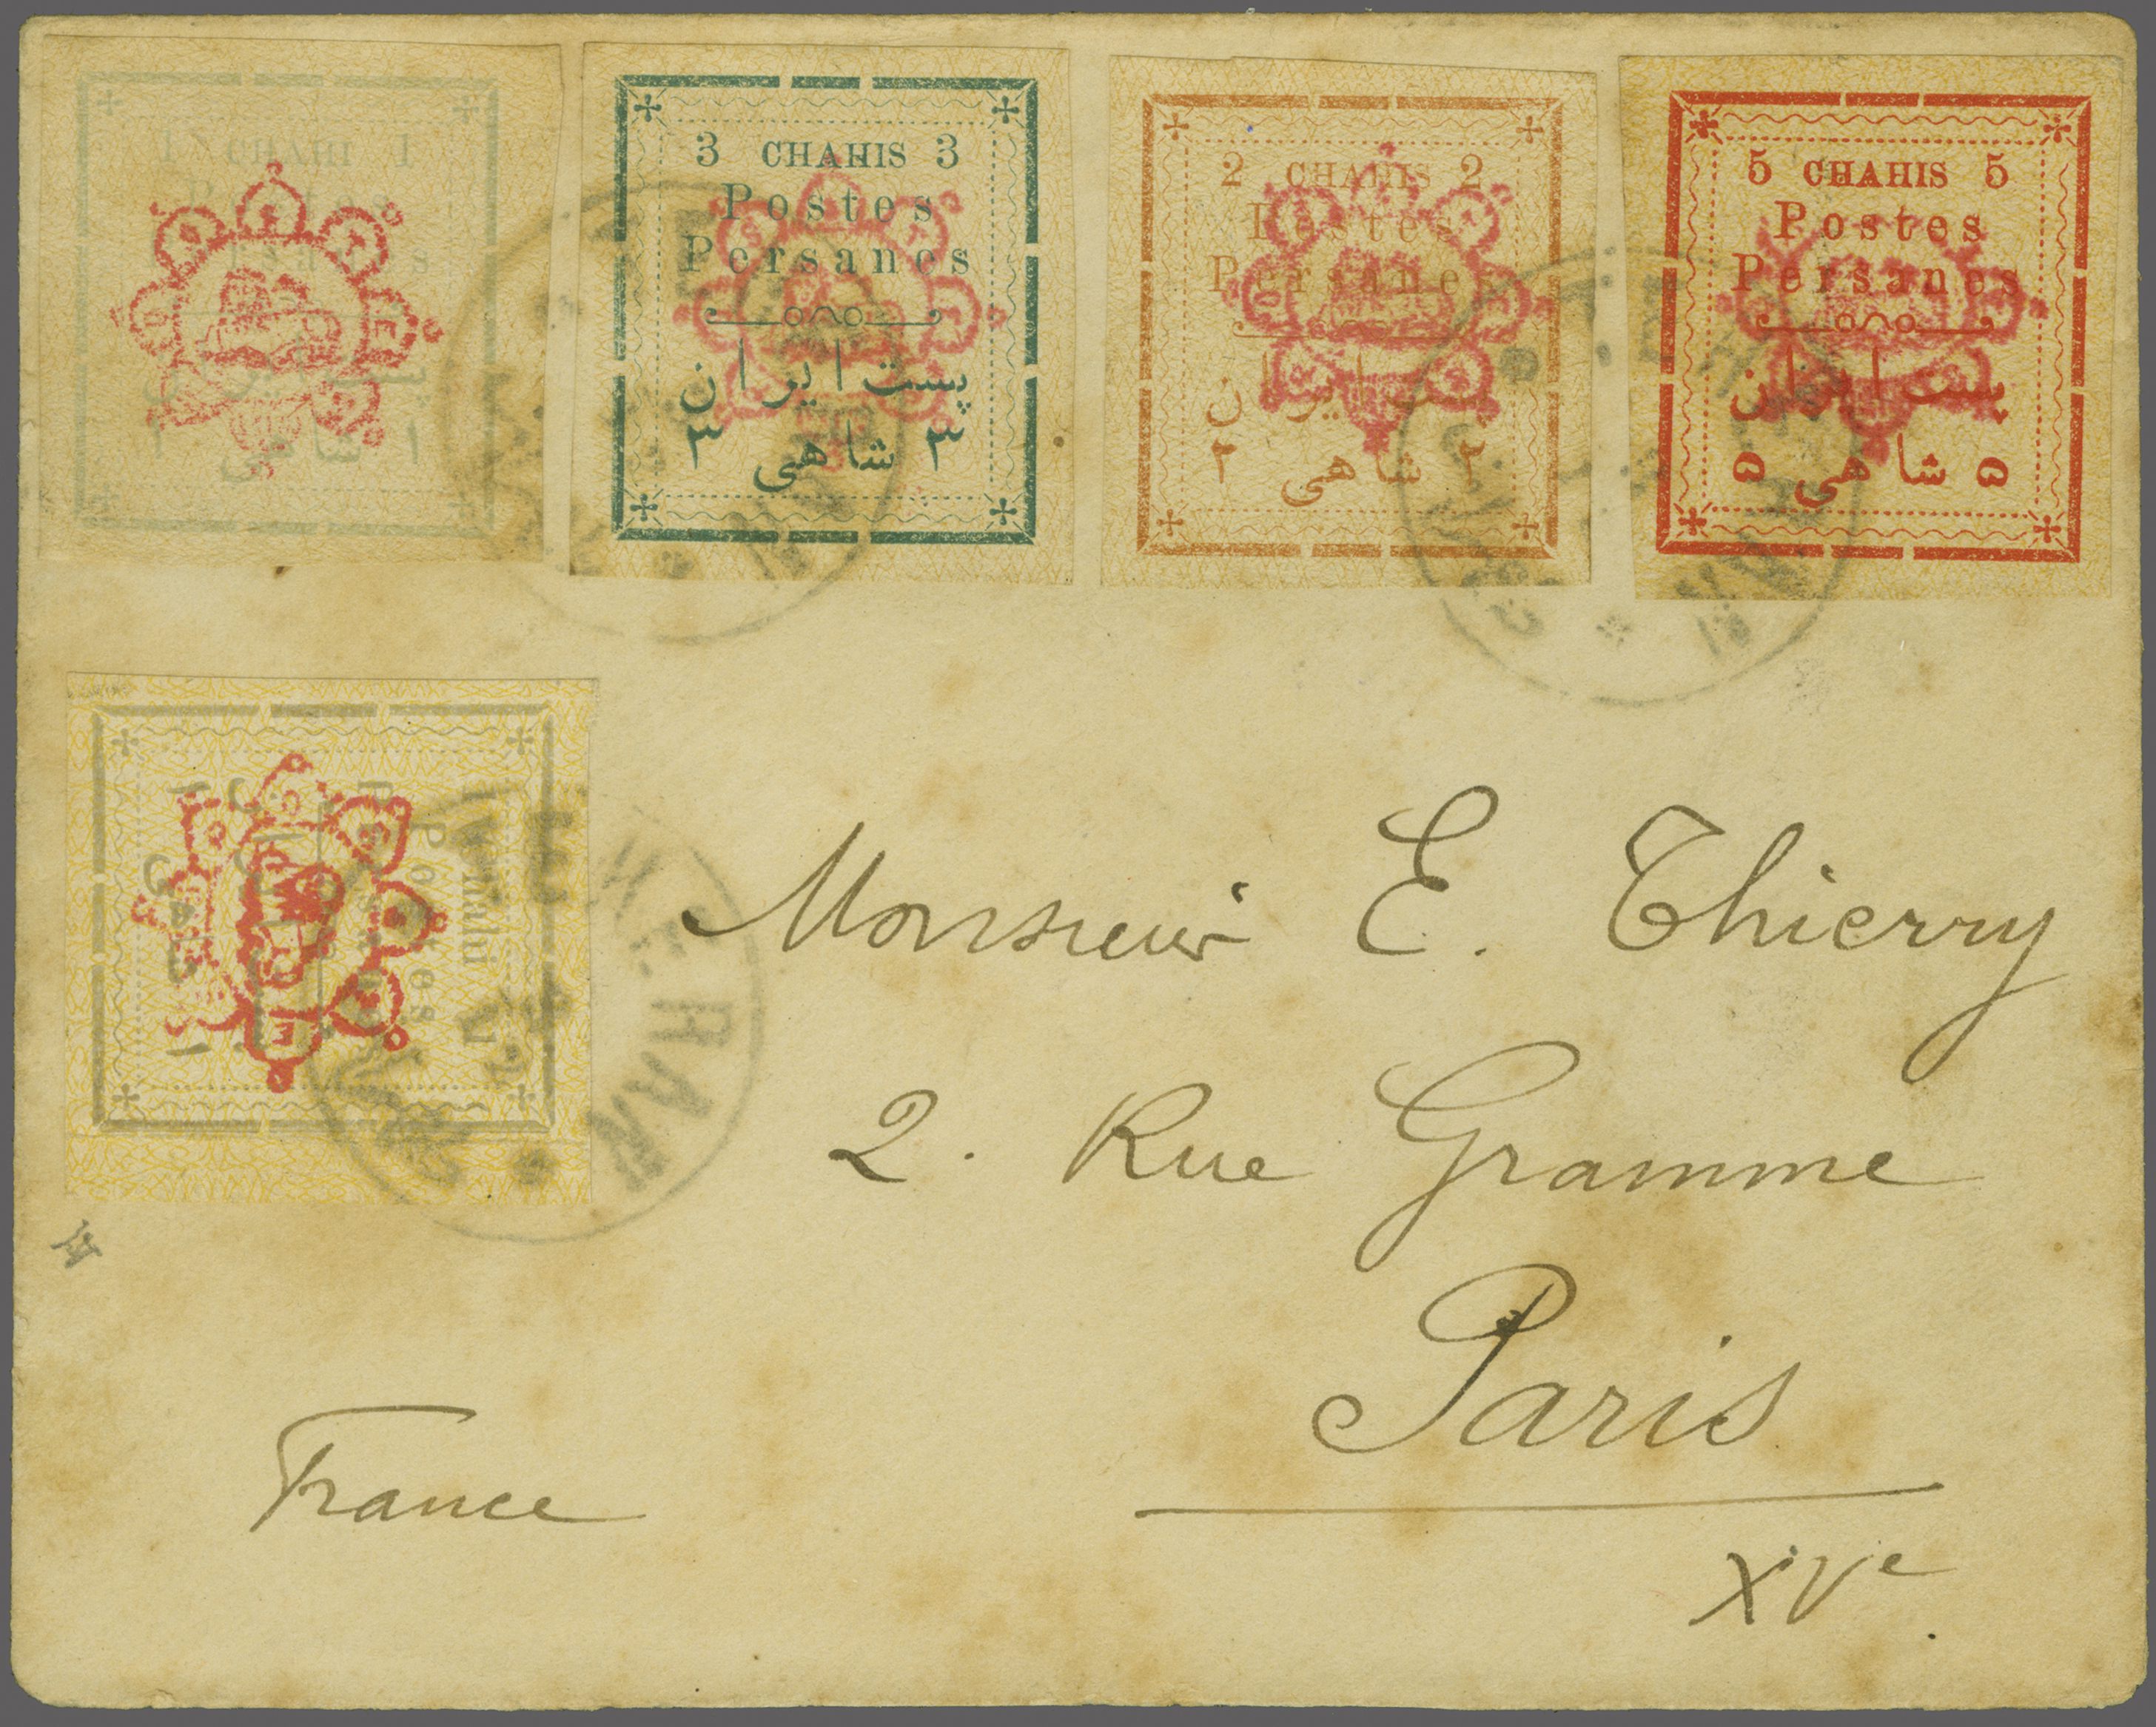 1 CHAHI 1
Postes
Persanes
پست ایران
۱ شاهی ۱
3 CHAHIS 3
Postes
Persanes
پست ایران
۳ شاهی ۳
2 CHAHIS 2
Postes
Persanes
پست ایران
۲ شاهی ۲
5 CHAHIS 5
Postes
Persanes
پست ایران
۵ شاهی ۵
Chahi
Postes
TEHERAN
Monsieur E. Thierry
2. Rue Gramme
Paris
France
XVe